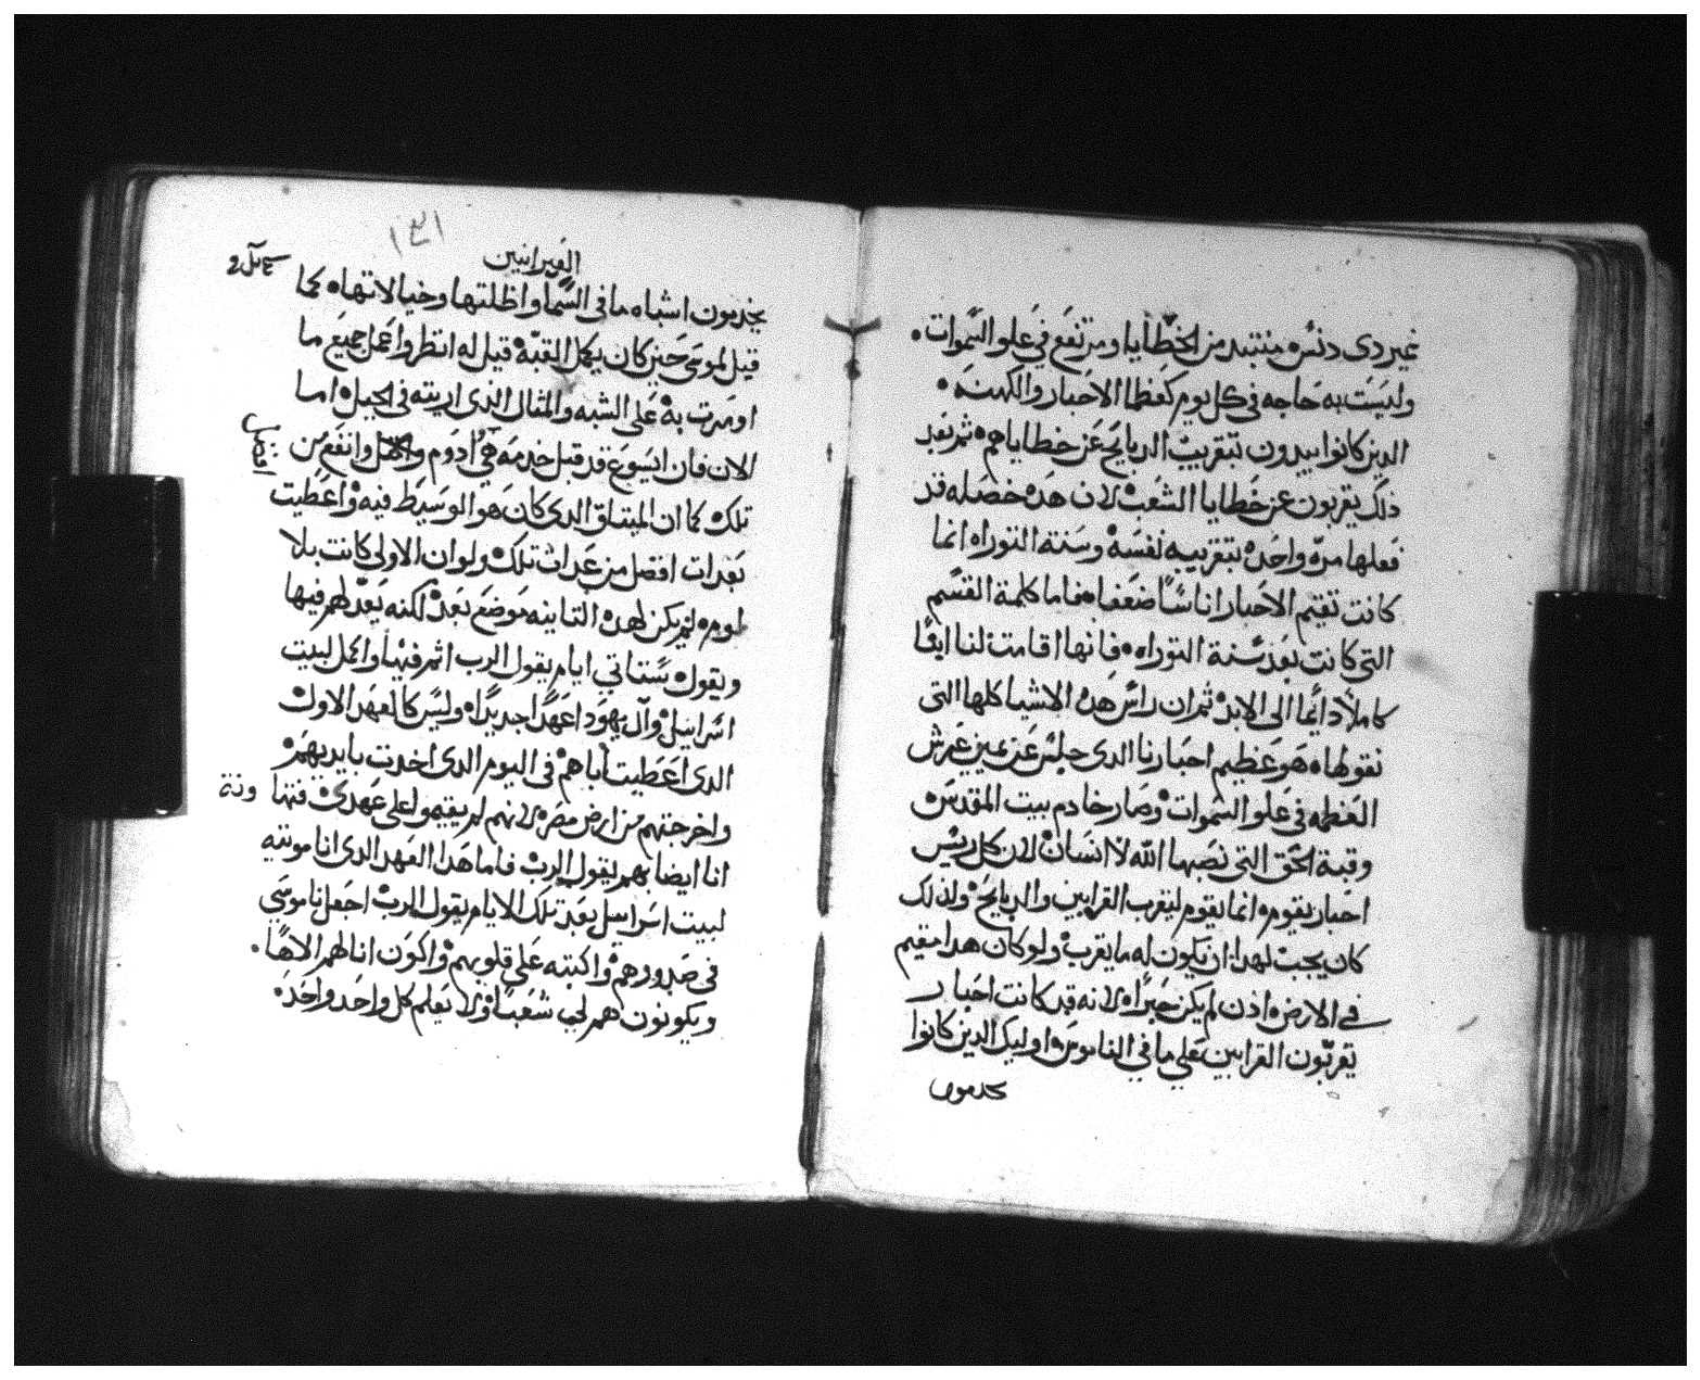 غير دى دنس منتبد من الخطايا ومرتفع في علو السموات.
وليست به حاجه في كل يوم كعظما الاحبار والكهنه.
الدين كانوا يبدون بتقريب الدبايح عن خطاياهم ثم بعد
دلك يقربون عن خطايا الشعب لان هده خصله قد
فعلها مره واحده بتقريبه نفسه وسنة التوراه انما
كانت تقيم الاحبار اناسًا ضعفاه فاما كلمة القسم
التى كانت بعد سنة التوراه فانها اقامت لنا ابنًا
كاملاً دائما الى الابد ثم ان راس هده الاشيا كلها التى
نقولها هو عظيم احبارنا الدى جلس عن يمين عرش
العظمه في علو السموات وصار خادم بيت المقدس
وقبة الحق التى نصبها الله لا انسان لان كل ريس
احبار يقوم انما يقوم ليقرب القرابين والدبايح ولذلك
كان يجب لهدا ان يكون له ما يقرب ولو كان هدا مقيم
في الارض ادن لم يكن حبرًا لانه قد كانت احبار
يقربون القرابين علي ما في الناموس اوليك الدين كانوا
يخدمون
العبرانيين
١٣١
يخدمون اشباه ما فى السما واظلتها وخيالاتها كما
قيل لموسى حين كان يكمل القبه قيل له انظر واعمل جميع ما
اومرت به على الشبه والمثال الدى اريته فى الجبل اما
الان فان ايسوع قد قبل خدمه هي ادوم وافضل وانفع من
افضل
تلك كما ان الميتاق الدى كان هو الوسيط فيه واعطيت
بعدات افضل من عدات تلك ولو ان الاولى كانت بلا
لوم لم يكن لهده التانيه موضع بعد لكنه يعدلهم فيها
ويقول ستاتي ايام يقول الرب اتم فيها واكمل لبيت
اسراييل وآل يهودا عهدًا جديدًا وليس كالعهد الاول
الدى اعطيت أباهم فى اليوم الدى اخدت بايديهم
واخرجتهم من ارض مصر لانهم لم يقيموا على عهدى فتها ونة
انا ايضا بهم يقول الرب فاما هدا العهد الدى انا موتيه
لبيت اسراييل بعد تلك الايام يقول الرب اجعل ناموسي
فى صدورهم واكتبه على قلوبهم واكون انا لهم الاهًا.
ويكونون هم لي شعبًا ولا يعلم كل واحد واحد